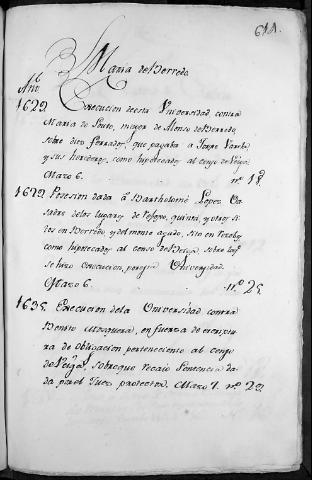 614.
Maria de Berredo
Año
1629. Execucion de esta Universidad contra
Maria de Souto, muger de Alonso de Berredo,
sobre diez ferrados, que pagaba a Jorge Varela,
y sus herederos, como hipotecados al censo de Veiga.
Mazo 6. nº 18.
1629. Posesion dada â Bartholomé Lopez Ca-
sadre delos lugares de quinta, y otros si-
tos en Berredo, y del monte agudo, sito en
como hipotecados al censo de sobre
se hizo execucion, por esta Universidad.
Mazo 6. nº 25.
1635. Execucion dela Universidad contra
Benito Mosquera, en fuerza de escriptu-
ra de obligacion perteneciente al censo
de Veiga, sobre que recaio Sentencia da-
da por el Juez protector. Mazo 7. nº 29.